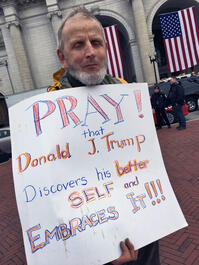 PRAY!
that
Donald J. Trump
Discovers his better
SELF and
EMBRACES It!!!